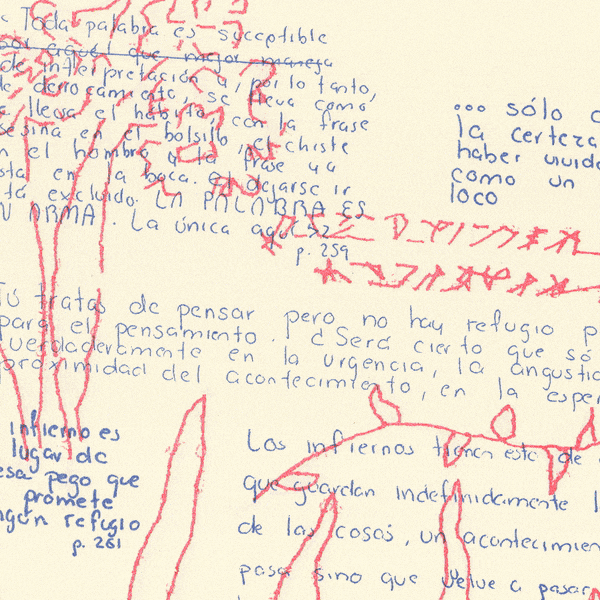 Toda palabra es succptible
por aquel que mejor maneja
de interpretación y, por lo tanto,
de derrocamiento, se lleva como
se lleva el hábito, con la frase
asesina en el bolsillo, el chiste
en el hombro y la frase ya
está en la boca. El dejarse ir
está excluido. LA PALABRA ES
UN ARMA. La única
p. 259
... sólo
la certeza
haber vivido
como un
loco
Tú tratas de pensar pero no hay refugio
para el pensamiento. ¿Será cierto que só
verdaderamente en la urgencia, la angustia
proximidad del acontecimiento, en la esper
infierno es
lugar de
esa pego que
promete
ngún refugio
p. 261
Los infiernos tienen esto de
que guardan indefinidamente
de las cosas, un acontecimien
pasa sino que vuelve a pasar